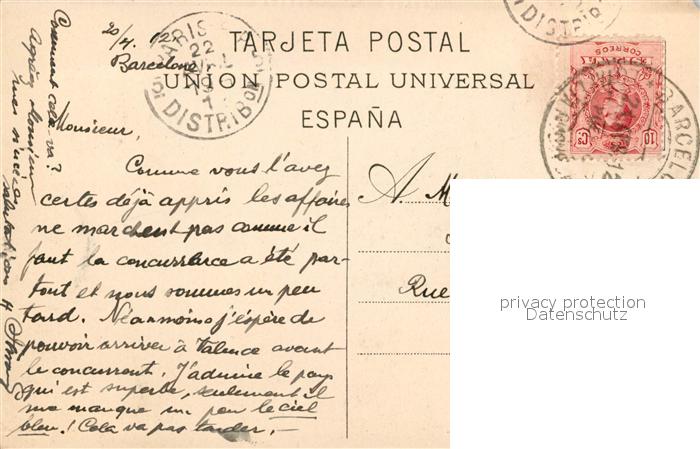 20/4. 12.
Barcelone
TARJETA POSTAL
UNION POSTAL UNIVERSAL
ESPAÑA
PARIS
22
DISTRIBON
DISTRIB
CORREOS
10 CS
BARCELO
Monsieur,
Comme vous l'avez
certes déjà appris les affaires
ne marchent pas comme il
faut la concurrence a été par-
tout et nous sommes un peu
tard. Néanmoins j'éspère de
pouvoir arriver à Valence avant
le concurrent. J'admire le pays
qui est superbe, seulement il
me manque un peu le ciel
bleu! Cela va pas tarder.-
Comment cela va?
Agréez Monsieur
mes sincères
salutations
A. M
Rue
privacy protection
Datenschutz